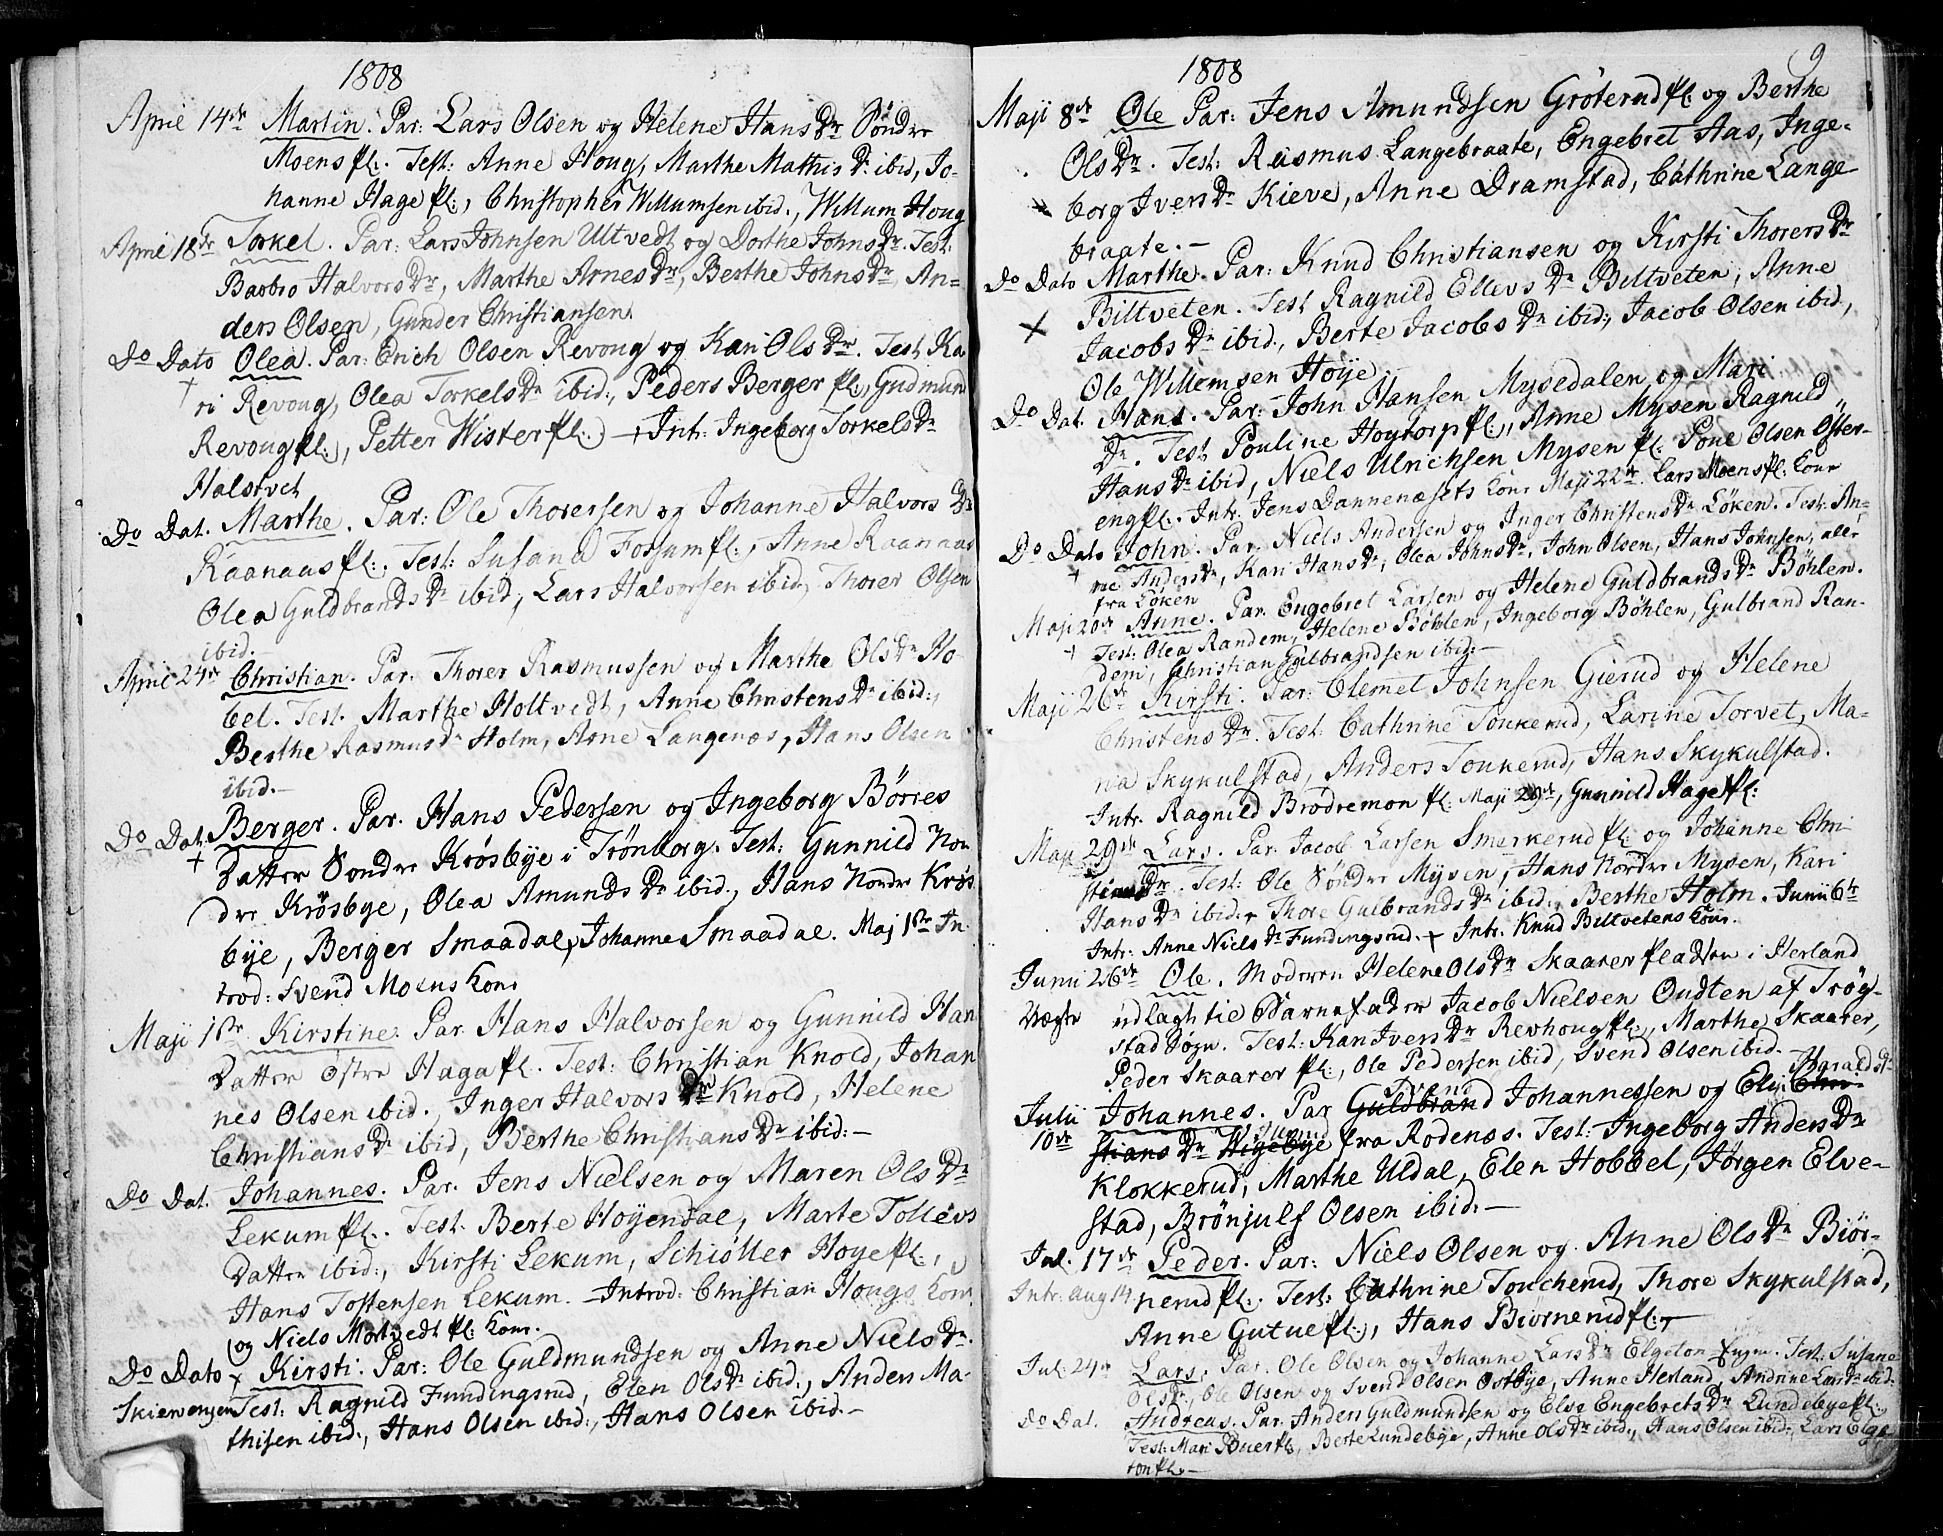 1808
April 14de Martin. Par: Lars Olsen og Helene Hans Dr Söndre
Moens pl:. Test: Anne Houg, Marthe Mathis Dr ibid, Jo-
hanne Hage pl:, Christopher Willumsen ibid., Willum Houg
April 18de Torkel. Par: Lars Johnsen Ultvedt og Dorthe Johns Dr. Test:
Barbro Halvors Dr, Marthe Arnes Dr, Berthe Johns Dr, An=
ders Olsen, Gunder Christiansen.
Do Dato Olea. Par: Erich Olsen Revoug og Kari Ols Dr. Test Ka
ri Revoug, Olea Torkels Dr ibid., Peders Berger pl:, Gudmund
Revoug pl:, Petter Wister pl:. + Int: Ingeborg Torkels Dr
Halstvet
Do Dat. Marthe. Par: Ole Thorersen og Johanne Halvors Dr
Raanaas pl:. Test: Susana Forsum pl:, Anne Raanaas
Olea Guldbrands Dr ibid, Lars Halvorsen ibid, Thorer Olsen
ibid.
April 24de Christian. Par. Thorer Rasmussen og Marthe Ols Dr Ho-
bel. Test. Marthe Holtvedt, Anne Christens Dr ibid.,
Berthe Rasmus Dr Holm, Arne Langenæs, Hans Olsen
ibid.—
Do Dat. Berger. Par. Hans Pedersen og Ingeborg Börres
+ Datter Sondre Krösbye i Trönborg. Test: Gunnild Nor
dre Krösbye, Olea Amunds Dr ibid., Hans Nordre Krös
bye, Berger Smaadal, Johanne Smaadal. Maj 1ste In-
trod: Svend Moens Kone
Maji 1ste Kirstine. Par. Hans Halvorsen og Gunnild Han
Datter östre Haga pl. Test: Christian Knold, Johan
nes Olsen ibid., Inger Halvors Dr Knold, Helene
Christians Dr ibid, Berthe Christians Dr ibid:—
Do Dat. Johannes. Par. Jens Nielsen og Maren Ols Dr
Lekum pl:. Test. Berte Hoyendal, Marte Tollevs
Datter ibid:, Kirsti Lekum, Schiötter Hoye pl:,
Hans Tostensen Lekum. — Introd: Christian Hougs Kone
(og Niels Mortvedt pl: Kone.
Do Dato x Kirsti. Par: Ole Guldmundsen og Anne Niels Dr.
Skiervengen Test: Ragnild Fundingsrud, Elen Ols Dr ibid:, Anders Ma-
thisen ibid., Hans Olsen ibid:, Hans Olsen ibid:—
1808
9
Maji 8de Ole Par: Jens Amundsen Gröterud pl: og Berthe
Ols Dr. Test: Rasmus Langebraate, Engebret Aas, Inge-
borg Ivers Dr Kieve, Anne Dramstad, Cathrine Lange
braate.—
Do Dato Marthe. Par: Knud Christiansen og Kirsti Thorers Dr
Biltveten. Test Ragnild Ellevs Dr Biltveten, Anne
x Jacobs Dr ibid., Berte Jacobs Dr ibid:, Jacob Olsen ibid,
Ole Willemsen Höye.
Do Dat. Hans. Par: John Hansen Mysedalen og Mari
Dr. Test Pouline Hoytorp pl:, Anne Mysen Ragnild
Hans Dr ibid, Niels Ulrichsen Mysen pl: Poul Olsen Öster-
eng pl:. Intr: Jens Dannenæsets Kone Maji 22de. Lars Moens pl. Kone
Do Dato John. Par. Niels Andersen og Inger Christens Dr Löken. Test: An-
+ ne Anders Dr, Kari Hans Dr, Olea Johns Dr, John Olsen, Hans Johnsen, alle
fra Löken
Maji 20de Anne. Par. Engebret Larsen og Helene Guldbrands Dr Böhlen.
+ Test: Olea Randem, Helene Böhlen, Ingeborg Böhlen, Gulbrand Ran-
dem, Christian Gulbrandsen ibid:—
Maji 26de Kirsti. Par: Clemet Johnsen Gierud og Helene
Christens Dr. Test: Cathrine Tonkerud, Larine Torvet, Ma-
ria Skykulstad, Anders Tonkerud, Hans Skykulstad.
Intr. Ragnild Brodremon pl: Maji 29de, Gunnild Hage pl:
Maji 29de Lars. Par. Jacob Larsen Smerkerud pl: og Johanne Chri
stens Dr. Test: Ole Söndre Mysen, Hans Nordre Mysen, Kari
Hans Dr ibid:, Thore Gulbrands Dr ibid:, Berthe Holm. Junii 6te
Intr: Anne Niels Dr Fundingsrud. + Intr. Knud Biltvetens Kone.
Junii 26de Ole. Moderen Helene Ols Dr Skaarer pladsen i Herland
Uægte udlagt til Barnefader Jacob Nielsen Oudten af Trög-
stad Sogn. Test: Kari Ivers Dr Revhoug pl:, Marthe Skaarer,
Peder Skaarer pl:, Ole Pedersen ibid, Svend Olsen ibid.
Julii Johannes. Par Guldbrand Johannessen og Elis Chri-
10de stians Dr Wigebye fra Rodenæs. Test: Ingeborg Anders Dr
Klokkerud, Marthe Uldal, Elen Hobbel, Jörgen Elve-
stad, Brönjulf Olsen ibid:—
Jul. 17de Peder. Par: Niels Olsen og Anne Ols Dr Biör-
Intr: Aug 14 nerud pl:. Test: Cathrine Toucherud, Thore Skykulstad,
Anne Gutue pl:, Hans Biornerud pl:—
Jul: 24de Lars. Par. Ole Olsen og Johanne Lars Dr Elgeton. Test. Susane
Ols Dr, Ole Olsen og Svend Olsen Ostbye, Anne Herland, Andrine Lars Dr ibid.
Do Dat. Andreas. Par. Anders Guldmundsen og Else Engebrets Dr Lundebye pl:,
Test: Mari Buer pl:, Berte Lundebye, Anne Ols Dr ibid., Hans Olsen ibid:, Lars Elge
ton pl:—